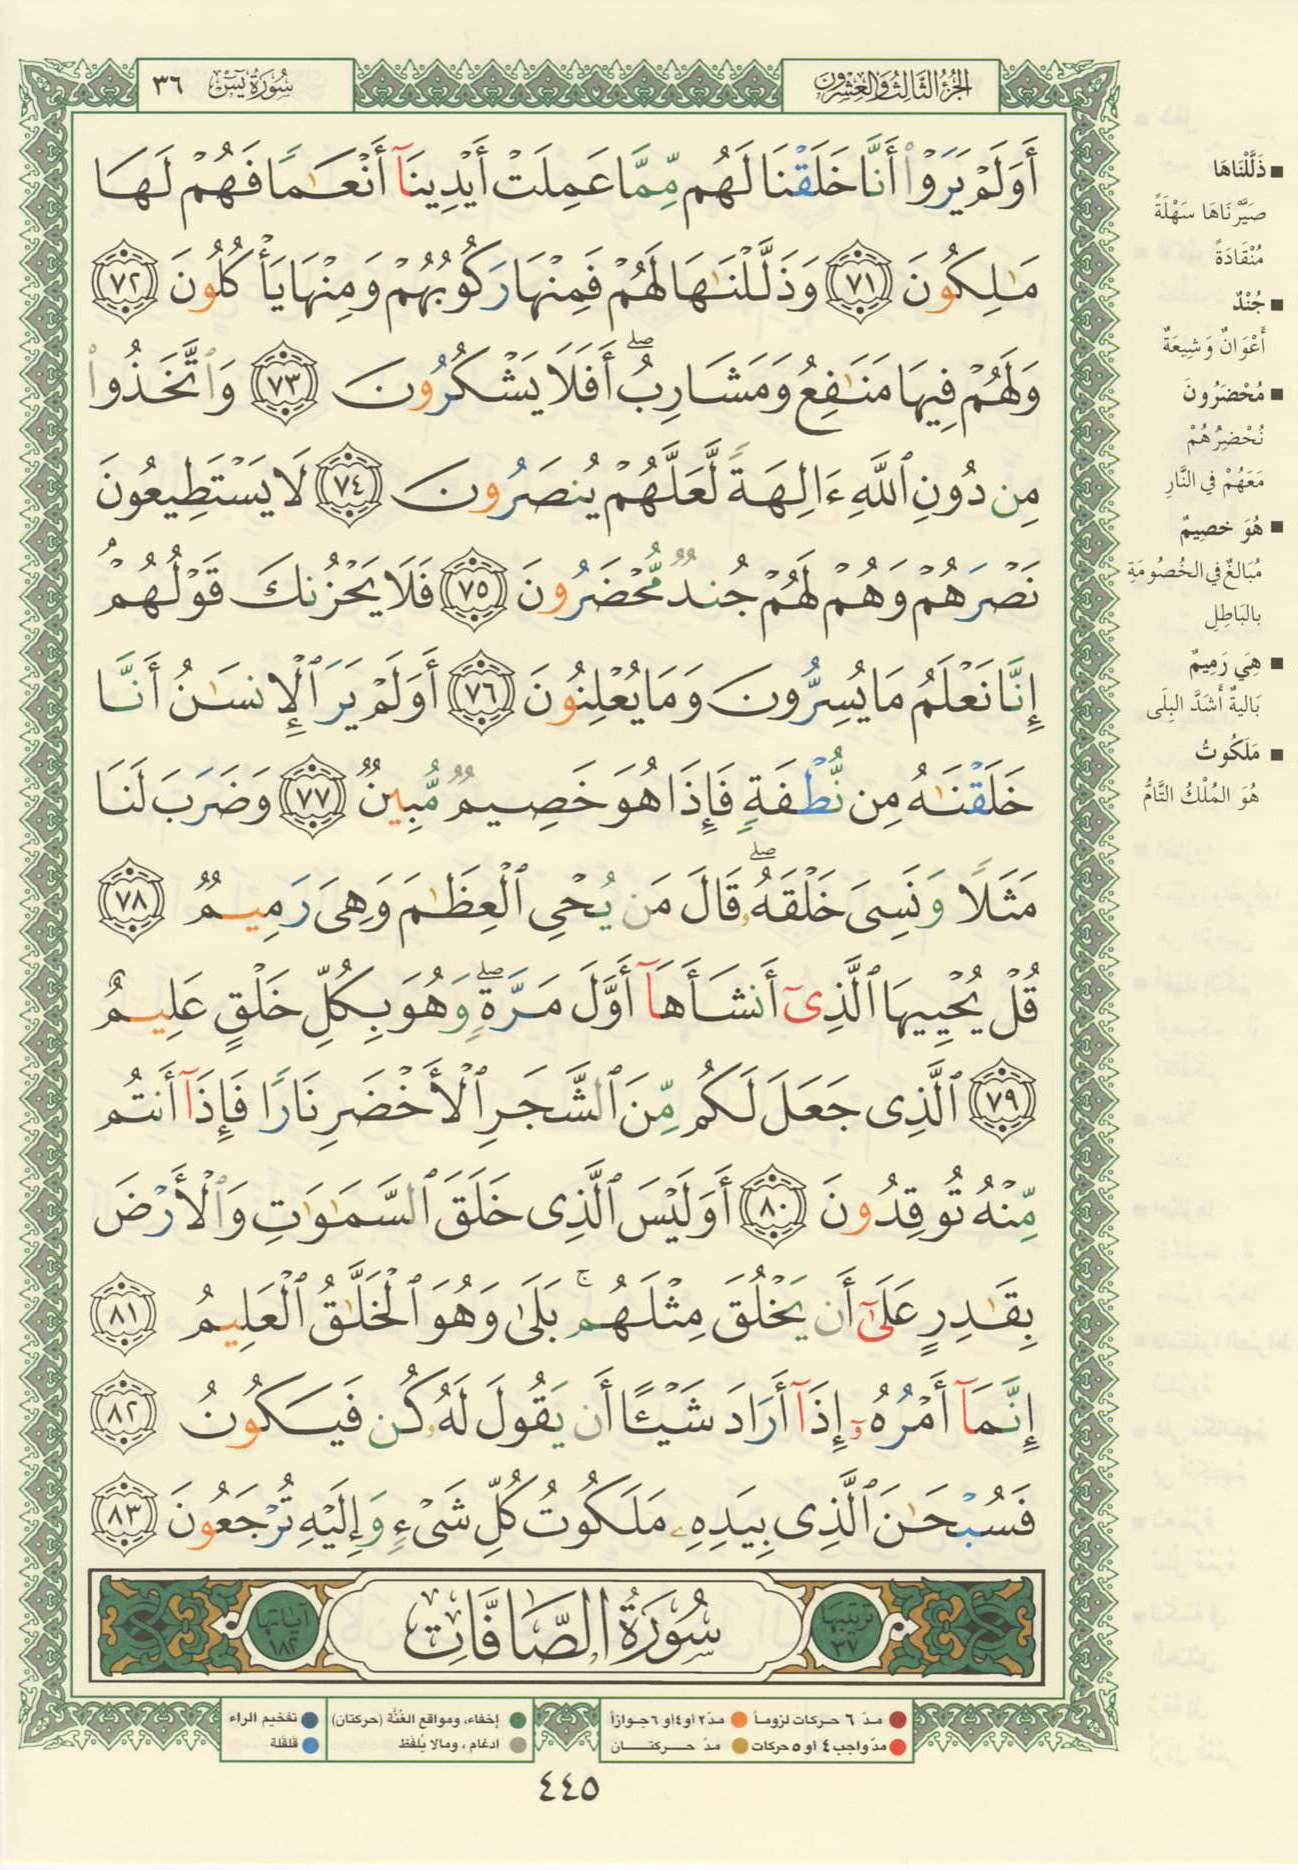 سُورَةُ يسٓ ٣٦
الجُزْءُ الثَّالِثُ وَالعِشْرُون
أَوَلَمْ يَرَوْا۟ أَنَّا خَلَقْنَا لَهُم مِّمَّا عَمِلَتْ أَيْدِينَآ أَنْعَـٰمًا فَهُمْ لَهَا
مَـٰلِكُونَ ٧١ وَذَلَّلْنَـٰهَا لَهُمْ فَمِنْهَا رَكُوبُهُمْ وَمِنْهَا يَأْكُلُونَ ٧٢
وَلَهُمْ فِيهَا مَنَـٰفِعُ وَمَشَارِبُ ۖ أَفَلَا يَشْكُرُونَ ٧٣ وَٱتَّخَذُوا۟
مِن دُونِ ٱللَّهِ ءَالِهَةً لَّعَلَّهُمْ يُنصَرُونَ ٧٤ لَا يَسْتَطِيعُونَ
نَصْرَهُمْ وَهُمْ لَهُمْ جُندٌ مُّحْضَرُونَ ٧٥ فَلَا يَحْزُنكَ قَوْلُهُمْ ۘ
إِنَّا نَعْلَمُ مَا يُسِرُّونَ وَمَا يُعْلِنُونَ ٧٦ أَوَلَمْ يَرَ ٱلْإِنسَـٰنُ أَنَّا
خَلَقْنَـٰهُ مِن نُّطْفَةٍ فَإِذَا هُوَ خَصِيمٌ مُّبِينٌ ٧٧ وَضَرَبَ لَنَا
مَثَلًا وَنَسِىَ خَلْقَهُۥ ۖ قَالَ مَن يُحْىِ ٱلْعِظَـٰمَ وَهِىَ رَمِيمٌ ٧٨
قُلْ يُحْيِيهَا ٱلَّذِىٓ أَنشَأَهَآ أَوَّلَ مَرَّةٍ ۖ وَهُوَ بِكُلِّ خَلْقٍ عَلِيمٌ
٧٩ ٱلَّذِى جَعَلَ لَكُم مِّنَ ٱلشَّجَرِ ٱلْأَخْضَرِ نَارًا فَإِذَآ أَنتُم
مِّنْهُ تُوقِدُونَ ٨٠ أَوَلَيْسَ ٱلَّذِى خَلَقَ ٱلسَّمَـٰوَٰتِ وَٱلْأَرْضَ
بِقَـٰدِرٍ عَلَىٰٓ أَن يَخْلُقَ مِثْلَهُم ۚ بَلَىٰ وَهُوَ ٱلْخَلَّـٰقُ ٱلْعَلِيمُ ٨١
إِنَّمَآ أَمْرُهُۥٓ إِذَآ أَرَادَ شَيْـًٔا أَن يَقُولَ لَهُۥ كُن فَيَكُونُ ٨٢
فَسُبْحَـٰنَ ٱلَّذِى بِيَدِهِۦ مَلَكُوتُ كُلِّ شَىْءٍ وَإِلَيْهِ تُرْجَعُونَ ٨٣
ترتيبها ٣٧
سُورَةُ الصَّافَّات
آياتها ١٨٢
ذَلَّلْنَاهَا
صَيَّرْنَاهَا سَهْلَةً
مُنْقَادَةً
جُنْدٌ
أَعْوَانٌ وَشِيعَةٌ
مُحْضَرُونَ
نُحْضِرُهُمْ
مَعَهُمْ فِي النَّارِ
هُوَ خصِيمٌ
مُبَالِغٌ فِي الخُصُومَةِ
بالبَاطِلِ
هِيَ رَمِيمٌ
بَاليةٌ أَشَدَّ البِلَى
مَلَكُوتُ
هُوَ المُلْكُ التَّامُّ
مدّ ٦ حركات لزوماً
مدّ ٢ أو ٤ أو ٦ جوازاً
إخفاء، ومواقع الغُنَّة (حركتان)
تفخيم الراء
مدّ واجب ٤ أو ٥ حركات
مدّ حركتان
ادغام، ومالا يُلفَظ
قلقلة
٤٤٥